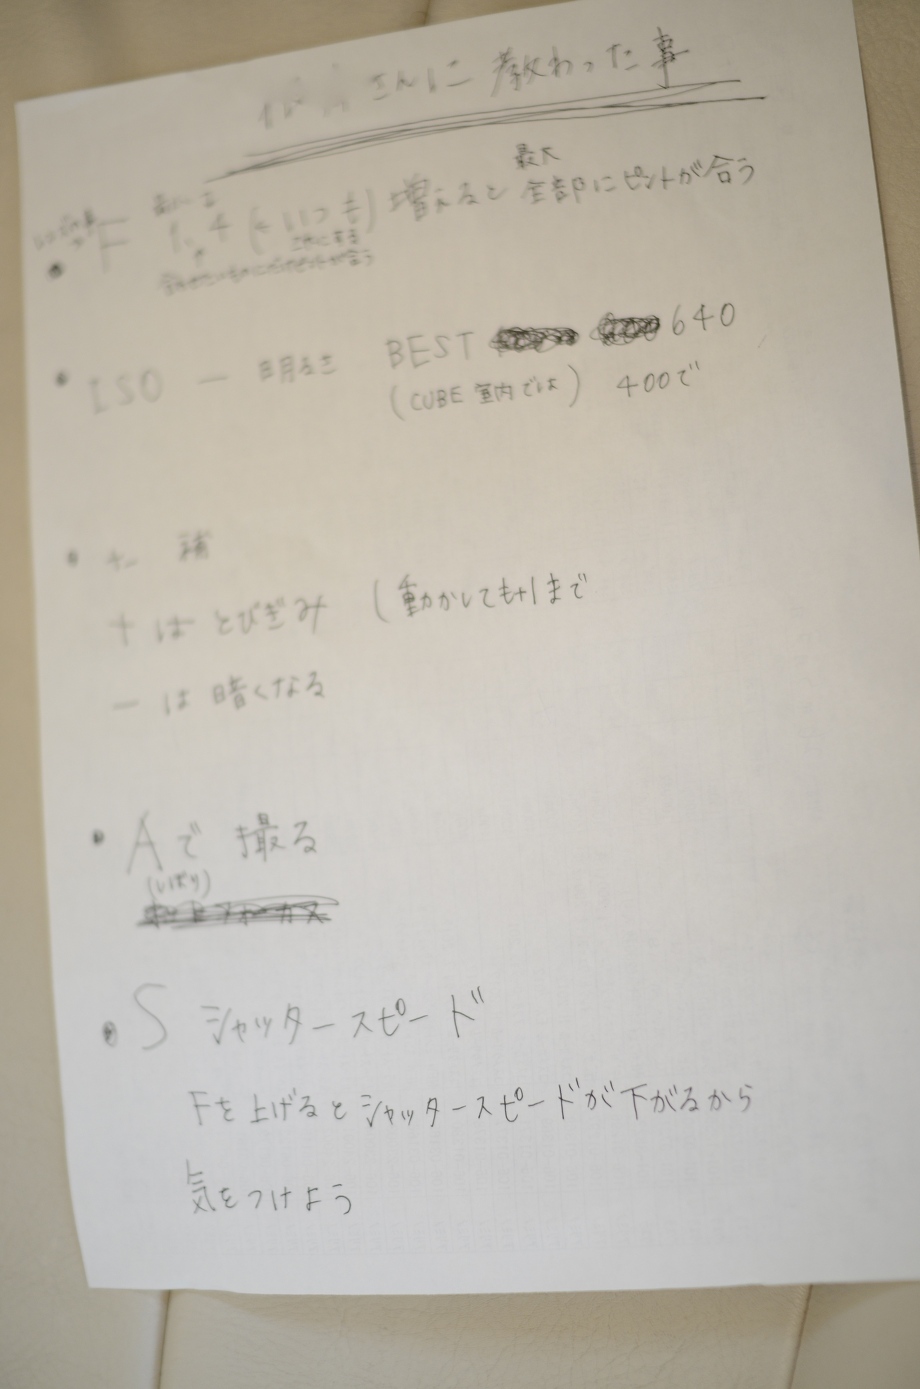 さんに教わった事
最大
F 1.4 (←いつも) 増えると全部にピントが合う
これにする
ISO ー 明るさ BEST 640
(CUBE 室内では) 400で
+- 補
+は とびぎみ (動かしても+1まで
ーは 暗くなる
Aで 撮る
(しぼり)
S シャッタースピード
Fを上げるとシャッタースピードが下がるから
気をつけよう